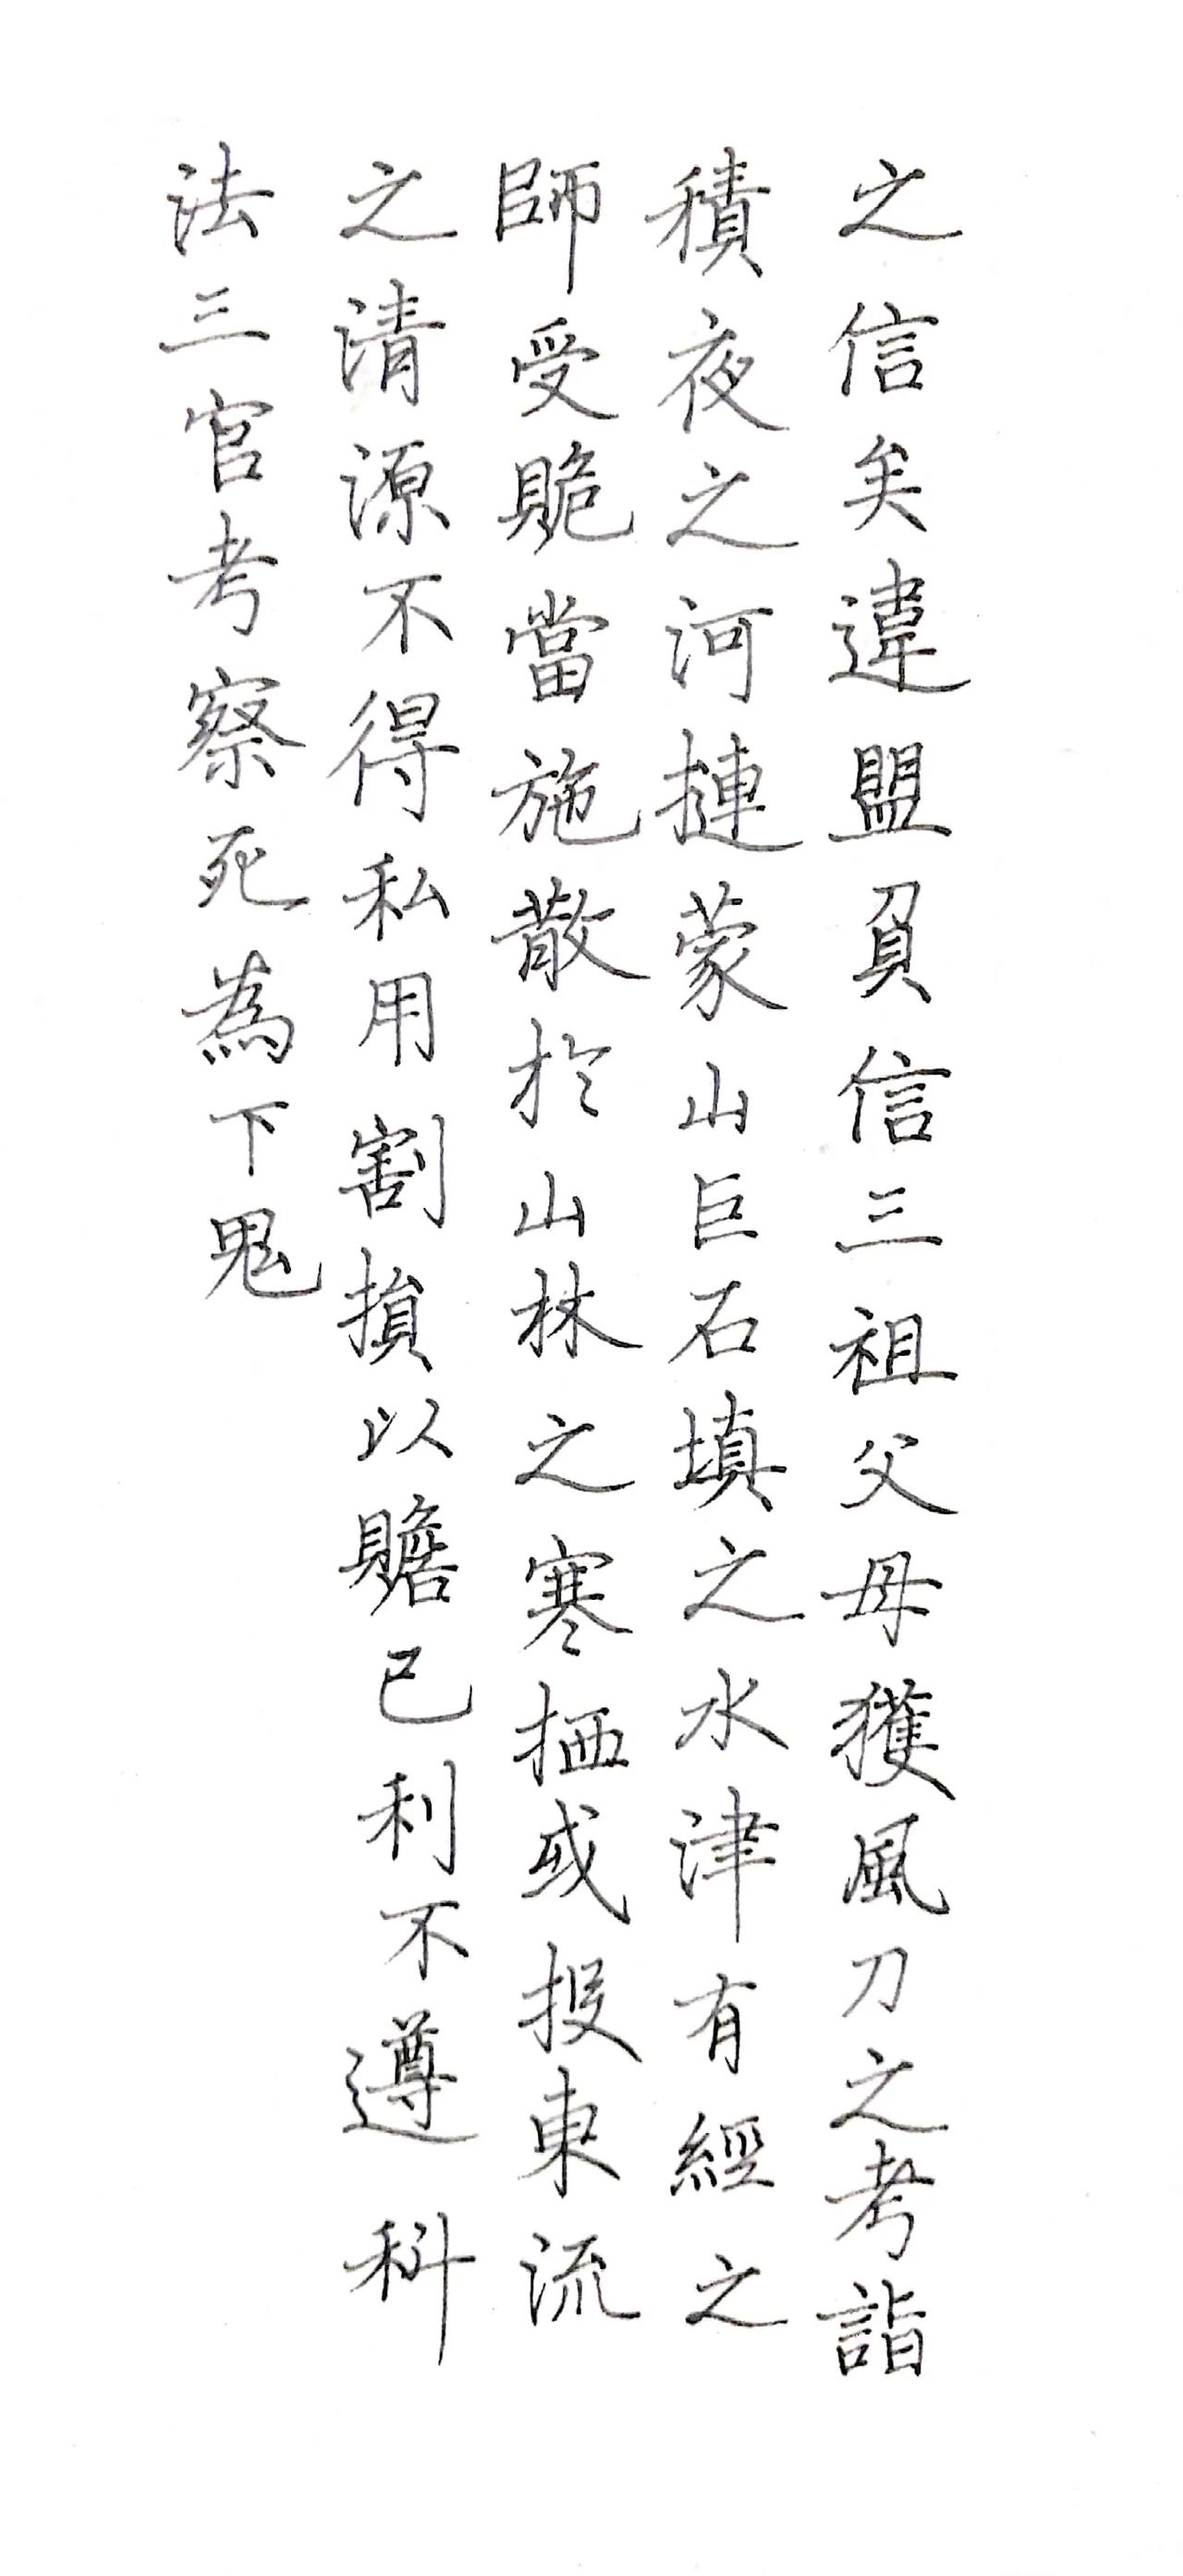 之信矣違盟負信三祖父母獲風刀之考詣
積夜之河摙蒙山巨石填之水津有經之
師受賄當施散於山林之寒栖或投東流
之清源不得私用割損以贍已利不遵科
法三官考察死為下鬼